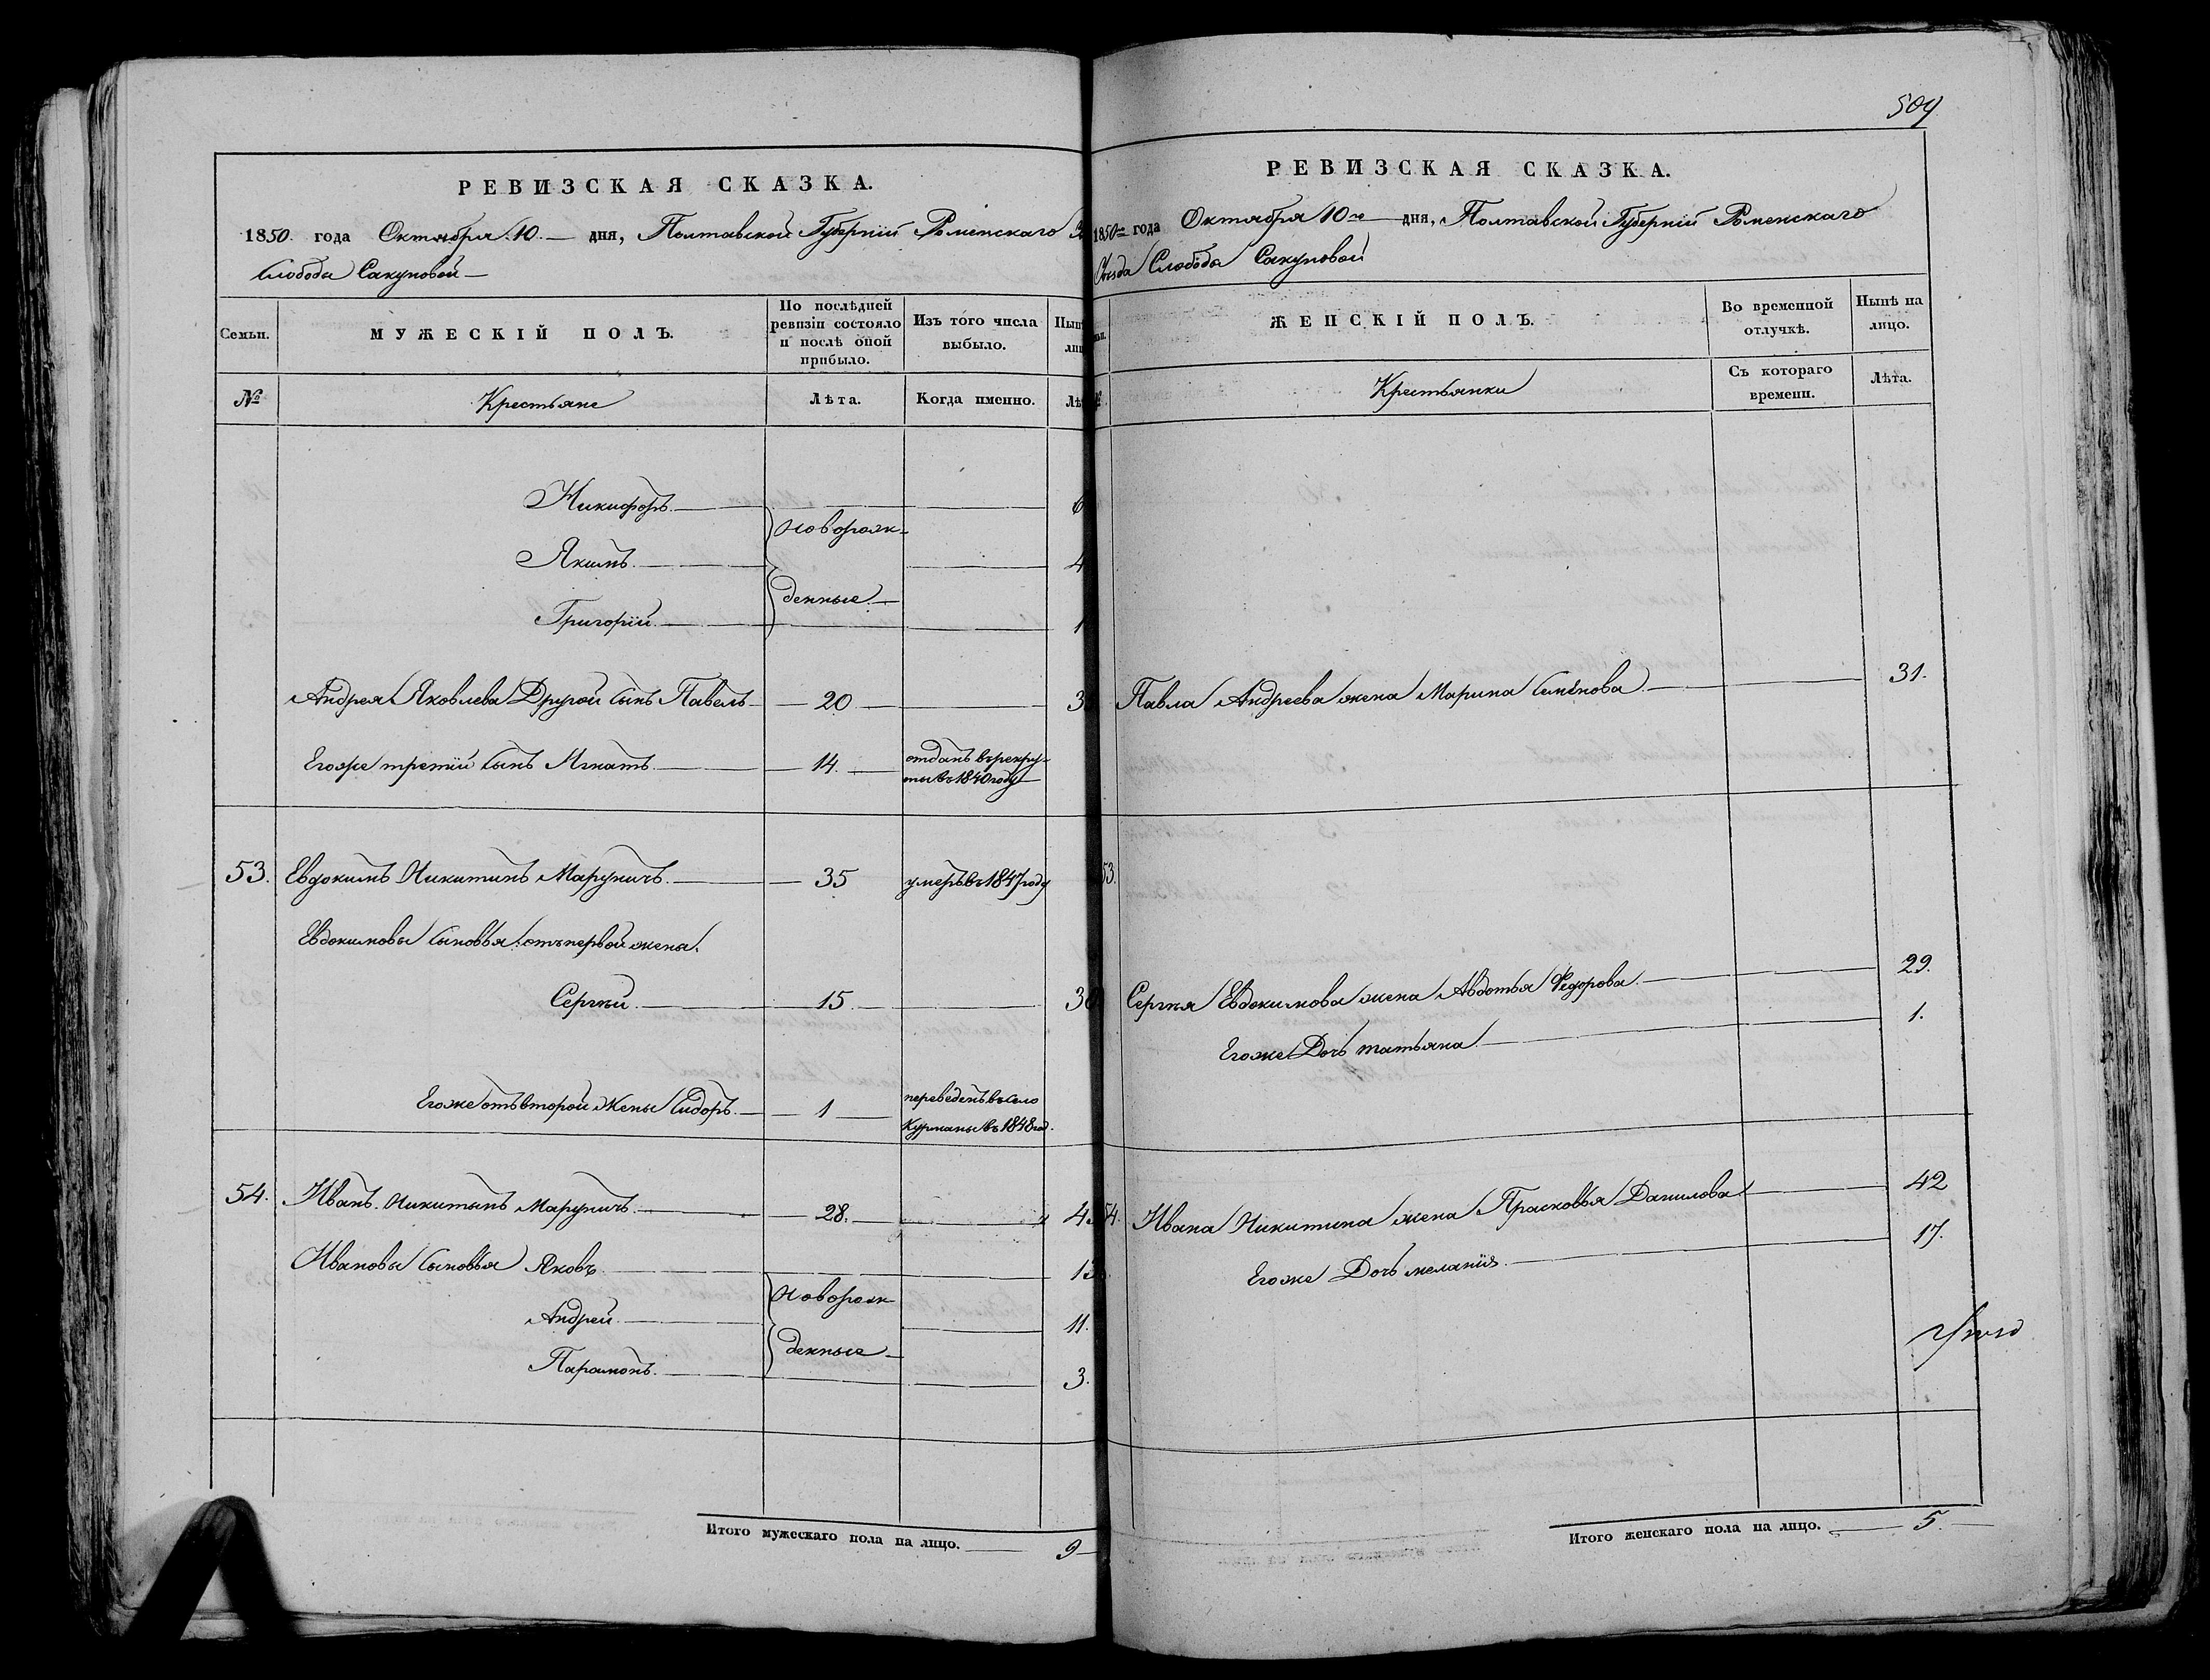 РЕВИЗСКАЯ СКАЗКА.
1850. года Октября 10. дня, Полтавской Губерніи Роменскаго
Слобода Сакуновой
Семьи.
МУЖЕСКІЙ ПОЛЪ.
По послѣдней ревизіи состояло и послѣ оной прибыло.
Изъ того числа выбыло.
№
Крестьяне
Лѣта.
Когда именно.
Никифоръ 6
новорож-
Якимъ 4
денные
Григорій 1
Андрея Яковлева Другой сынъ Павелъ 20
Егоже третій сынъ Игнатъ 14. отданъ врекру-
ты въ 1840 году
53. Евдокимъ Никитинъ Маруничъ 35 умеръ въ 1847 году
Евдокимовы сыновья отъ первой жены.
Сергѣй 15
Егоже отъ второй Жены Сидоръ 1 переведенъ въ село
Курманы въ 1848 год.
54. Иванъ Никитынъ Маруничъ 28.
Ивановы сыновья Яковъ
новорож
Андрей 11.
денные
Парамонъ 3.
Итого мужескаго пола на лицо. 9
509
РЕВИЗСКАЯ СКАЗКА.
1850 года Октября 10 дня, Полтавской Губерніи Роменскаго
Уѣзда Слобода Сакуновой
ЖЕНСКІЙ ПОЛЪ.
Во временной отлучкѣ.
Нынѣ на лицо.
Крестьянки
Съ котораго времени.
Лѣта.
Павла Андреева жена Марина Семёнова 31.
53.
Сергѣя Евдокимова жена Авдотья Федорова 29.
Егоже Дочь татьяна 1.
54. Ивана Никитина жена Прасковья Данилова 42
Егоже Дочь меланія 17.
Итого женскаго пола на лицо. 5.